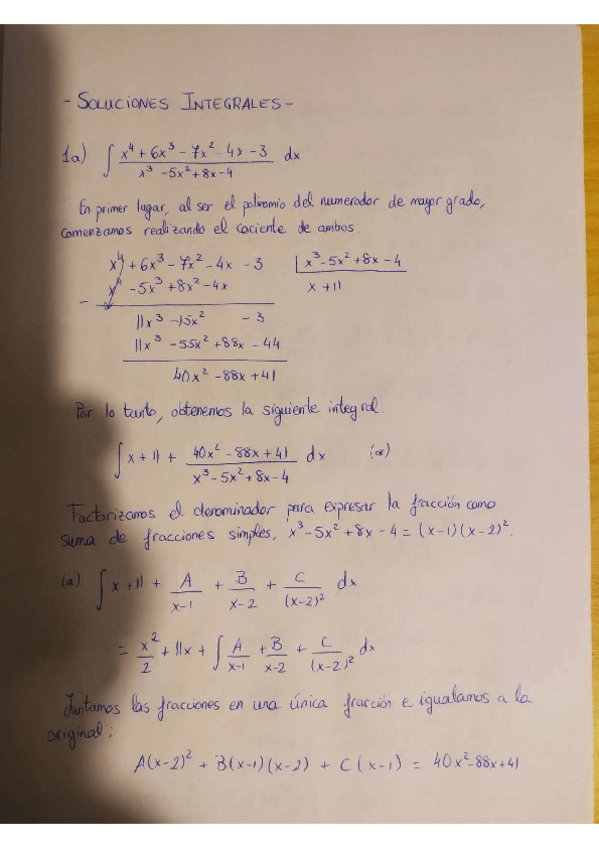 - SOLUCIONES INTEGRALES -
1a) ∫ (x⁴ + 6x³ - 7x² - 4x - 3)/(x³ - 5x² + 8x - 4) dx
En primer lugar, al ser el polinomio del numerador de mayor grado,
comenzamos realizando el cociente de ambos:
x⁴ + 6x³ - 7x² - 4x - 3 | x³ - 5x² + 8x - 4
- x⁴ - 5x³ + 8x² - 4x x + 11
11x³ - 15x² - 3
11x³ - 55x² + 88x - 44
40x² - 88x + 41
Por lo tanto, obtenemos la siguiente integral:
∫ x + 11 + (40x² - 88x + 41)/(x³ - 5x² + 8x - 4) dx (a)
Factorizamos el denominador para expresar la fracción como
suma de fracciones simples, x³ - 5x² + 8x - 4 = (x-1)(x-2)².
(a) ∫ x + 11 + A/(x-1) + B/(x-2) + C/(x-2)² dx
= x²/2 + 11x + ∫ A/(x-1) + B/(x-2) + C/(x-2)² dx
Juntamos las fracciones en una única fracción e igualamos a la
original:
A(x-2)² + B(x-1)(x-2) + C(x-1) = 40x² - 88x + 41